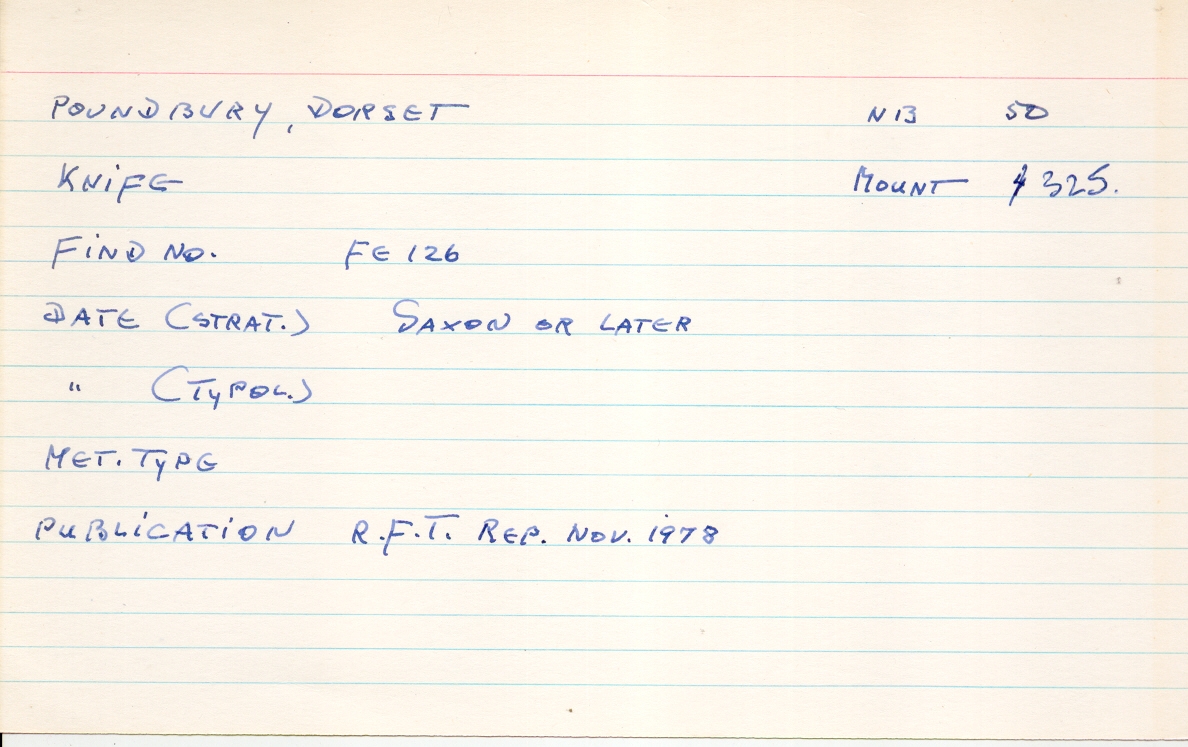 POUNDBURY, DORSET NB 50
KNiFE MOUNT 4325.
FiND No. FE 126
DATE (STRAT.) SAXON OR LATER
" (TYPOL.)
MET. TYPE
PUBLiCATiON R.F.T. REP. NOV. 1978